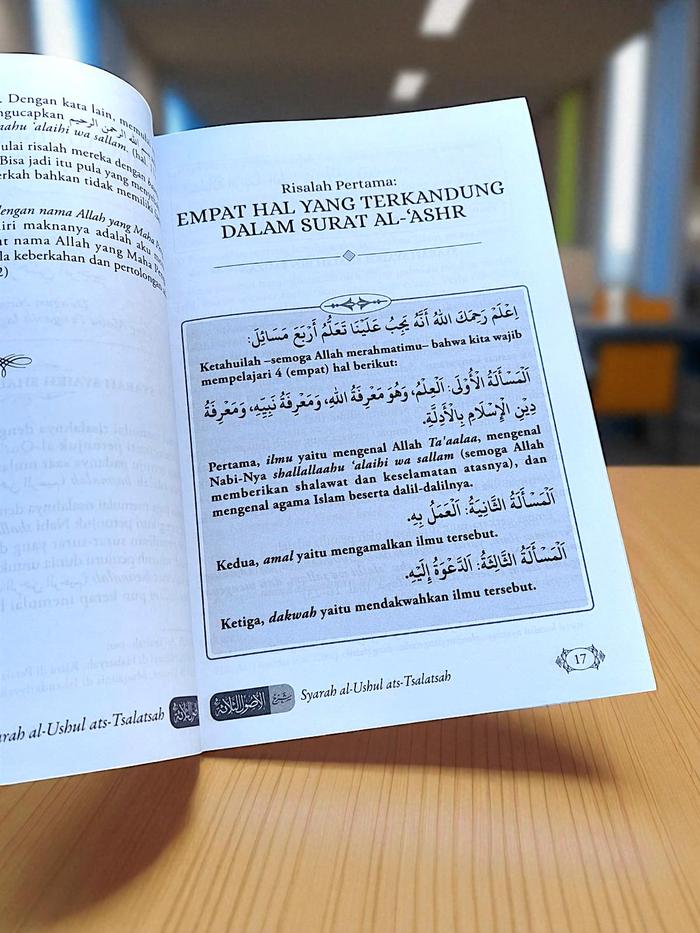 . Dengan kata lain,
ngucapkan الله الرحمن الرحيم
'alaihi wa sallam. (hal
ulai risalah mereka dengan
Bisa jadi itu pula yang
erkah bahkan tidak memiliki
dengan nama Allah yang Maha
iri maknanya adalah aku
at nama Allah yang Maha
la keberkahan dan pertolongan
2)
arah al-Ushul ats-Tsalatsah
Risalah Pertama:
EMPAT HAL YANG TERKANDUNG
DALAM SURAT AL-‘ASHR
اِعْلَمْ رَحِمَكَ اللهُ أَنَّهُ يَجِبُ عَلَيْنَا تَعَلُّمُ أَرْبَعِ مَسَائِلَ:
Ketahuilah –semoga Allah merahmatimu– bahwa kita wajib
mempelajari 4 (empat) hal berikut:
اَلْمَسْأَلَةُ الْأُوْلَى: اَلْعِلْمُ، وَهُوَ مَعْرِفَةُ اللهِ، وَمَعْرِفَةُ نَبِيِّهِ، وَمَعْرِفَةُ
دِيْنِ الْإِسْلَامِ بِالْأَدِلَّةِ.
Pertama, ilmu yaitu mengenal Allah Ta'aalaa, mengenal
Nabi-Nya shallallaahu ‘alaihi wa sallam (semoga Allah
memberikan shalawat dan keselamatan atasnya), dan
mengenal agama Islam beserta dalil-dalilnya.
اَلْمَسْأَلَةُ الثَّانِيَةُ: اَلْعَمَلُ بِهِ.
Kedua, amal yaitu mengamalkan ilmu tersebut.
اَلْمَسْأَلَةُ الثَّالِثَةُ: اَلدَّعْوَةُ إِلَيْهِ.
Ketiga, dakwah yaitu mendakwahkan ilmu tersebut.
17
شرح الأصول الثلاثة Syarah al-Ushul ats-Tsalatsah